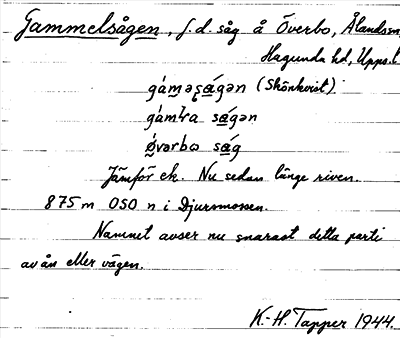 Gammelsågen, f.d. såg å Överbo, Ålandssn,
Hagunda hd, Upps. l.
gáməʂágən (Skönkvist)
gámɫra ságən
ǿvərbω ság
Jämför ek. Nu sedan länge riven.
875 m OSO n i Djursmossen.
Namnet avser nu snarast detta parti
av ån eller vägen.
K.-H. Tapper 1944.